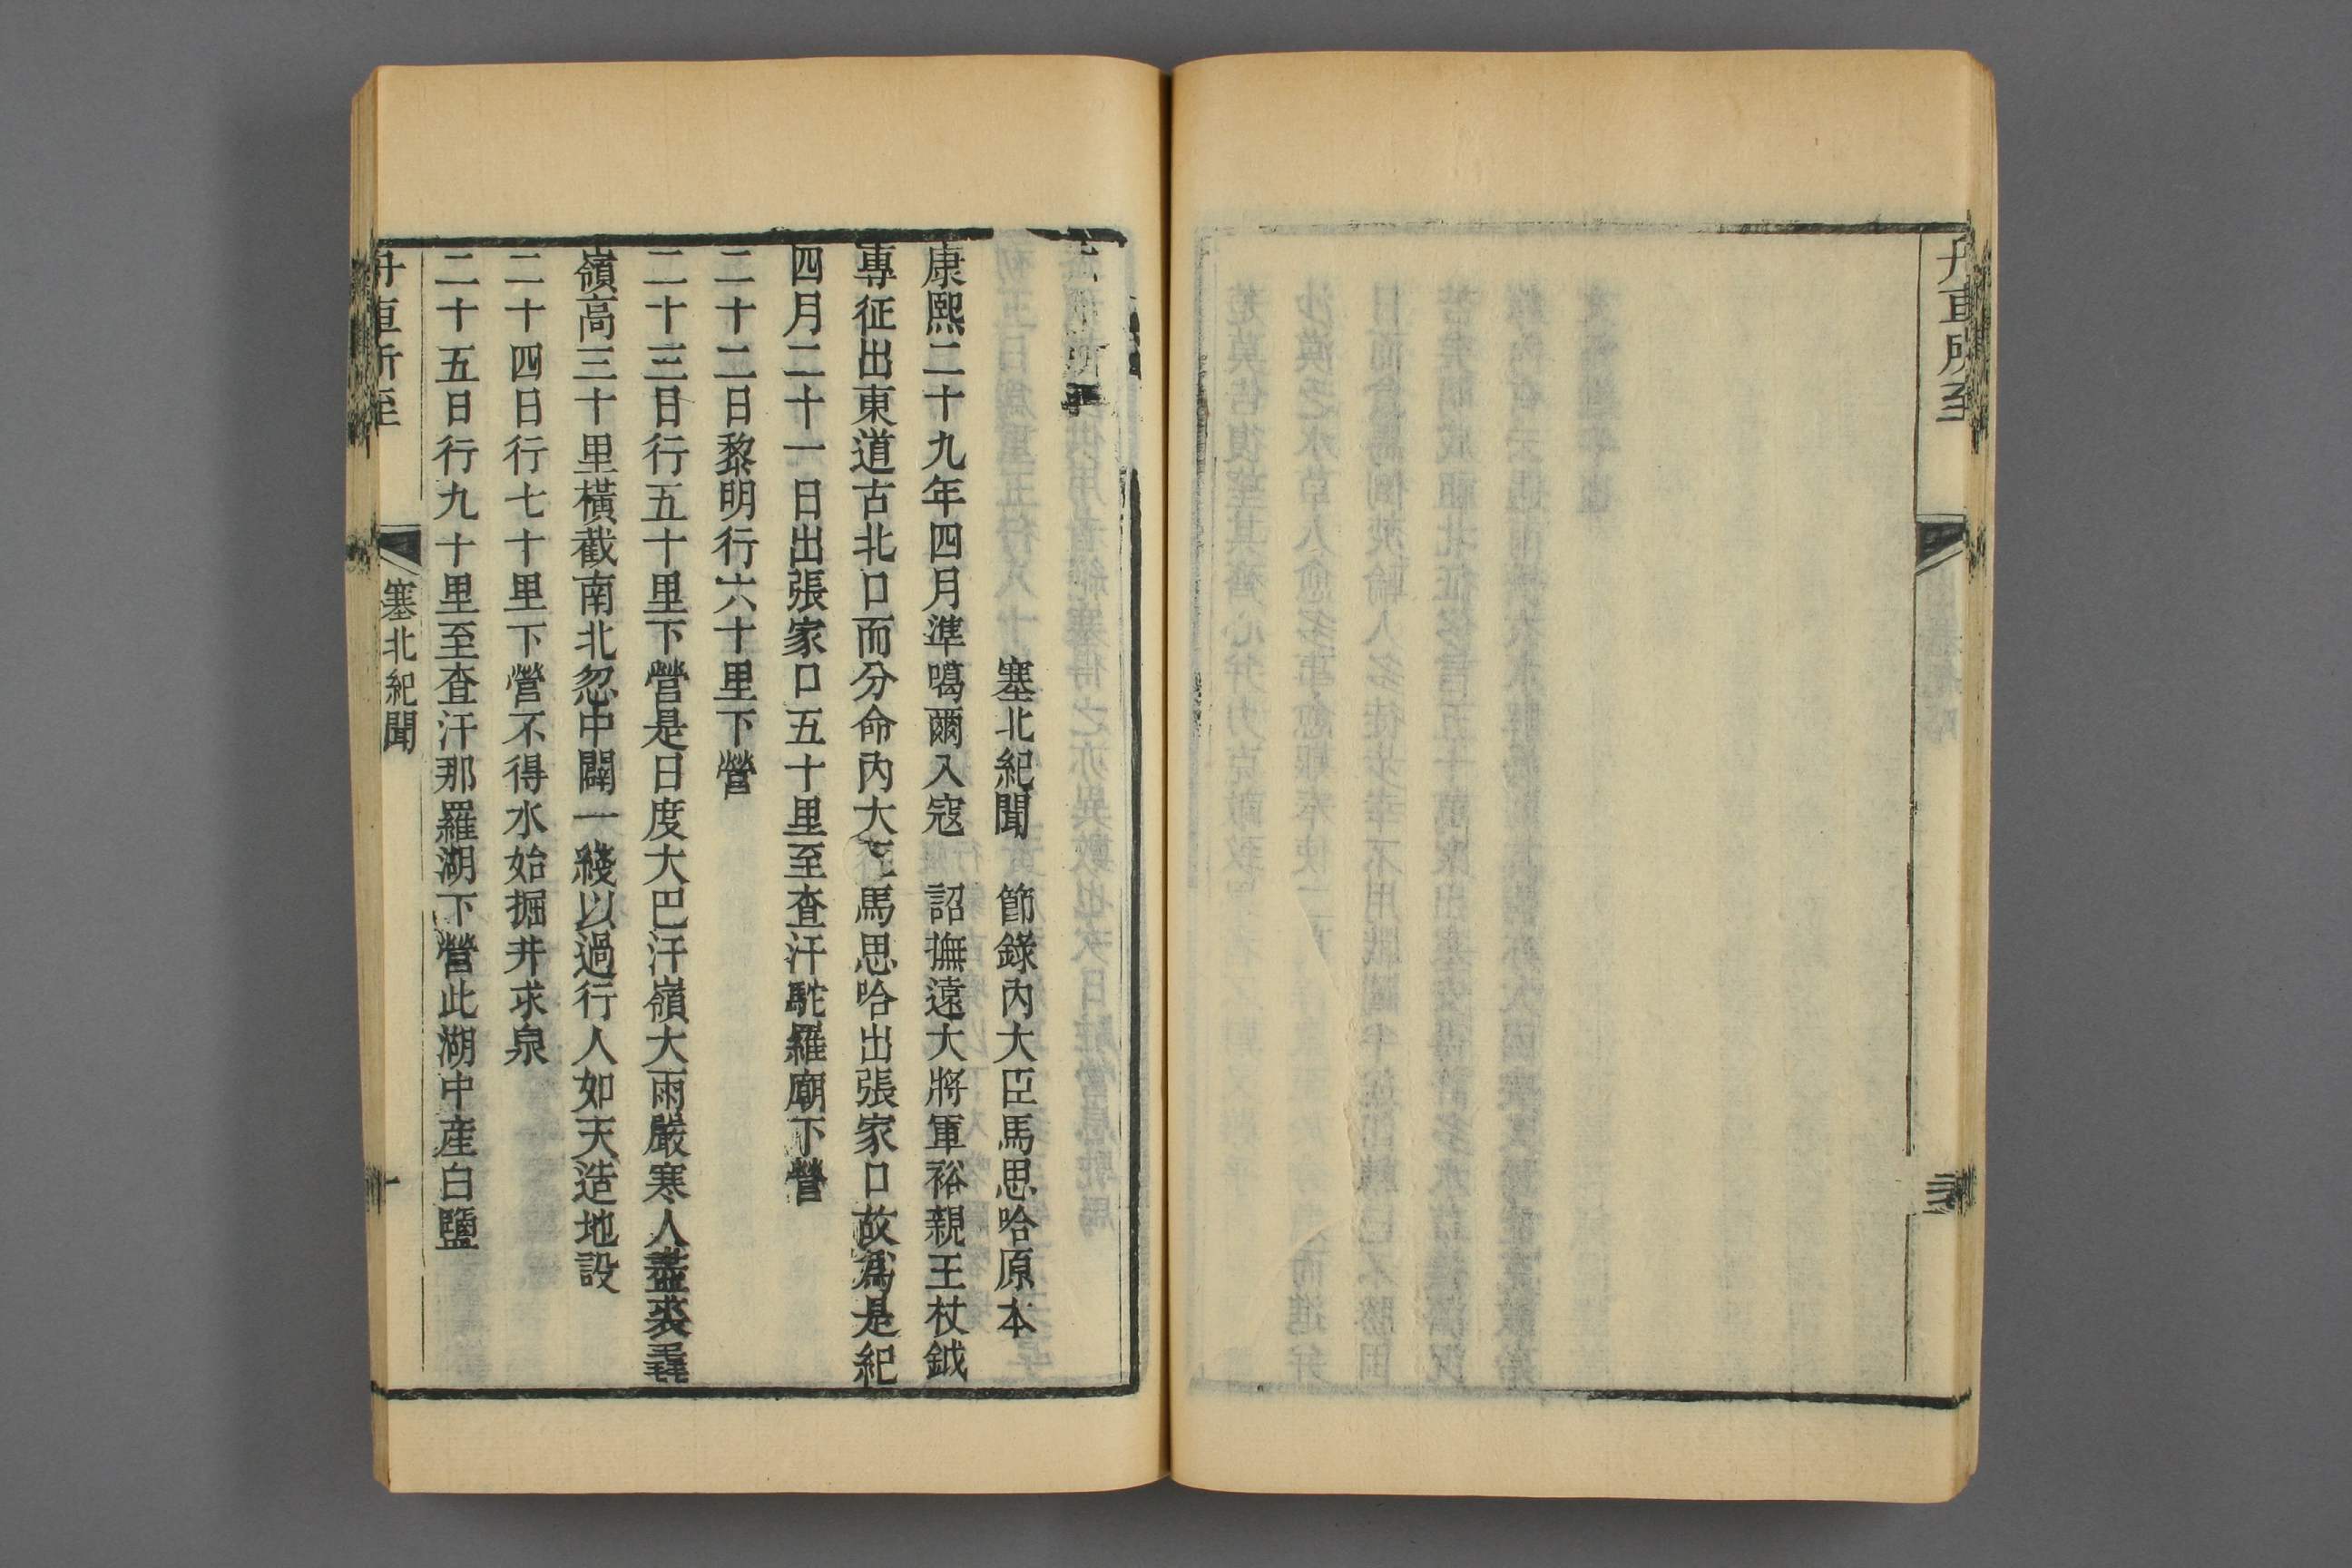 舟車所至
塞北紀聞 節錄內大臣馬思哈原本
康熙二十九年四月準噶爾入寇 詔撫遠大將軍裕親王杖鉞
專征出東道古北口而分命內大馬思哈出張家口故爲是紀
四月二十一日出張家口五十里至查汗駝羅廟下營
二十二日黎明行六十里下營
二十三日行五十里下營是日度大巴汗嶺大雨嚴寒人盡裘毳
嶺高三十里橫截南北忽中闢一綫以過行人如天造地設
二十四日行七十里下營不得水始掘井求泉
二十五日行九十里至查汗那羅湖下營此湖中產白鹽
舟車所至 塞北紀聞 一